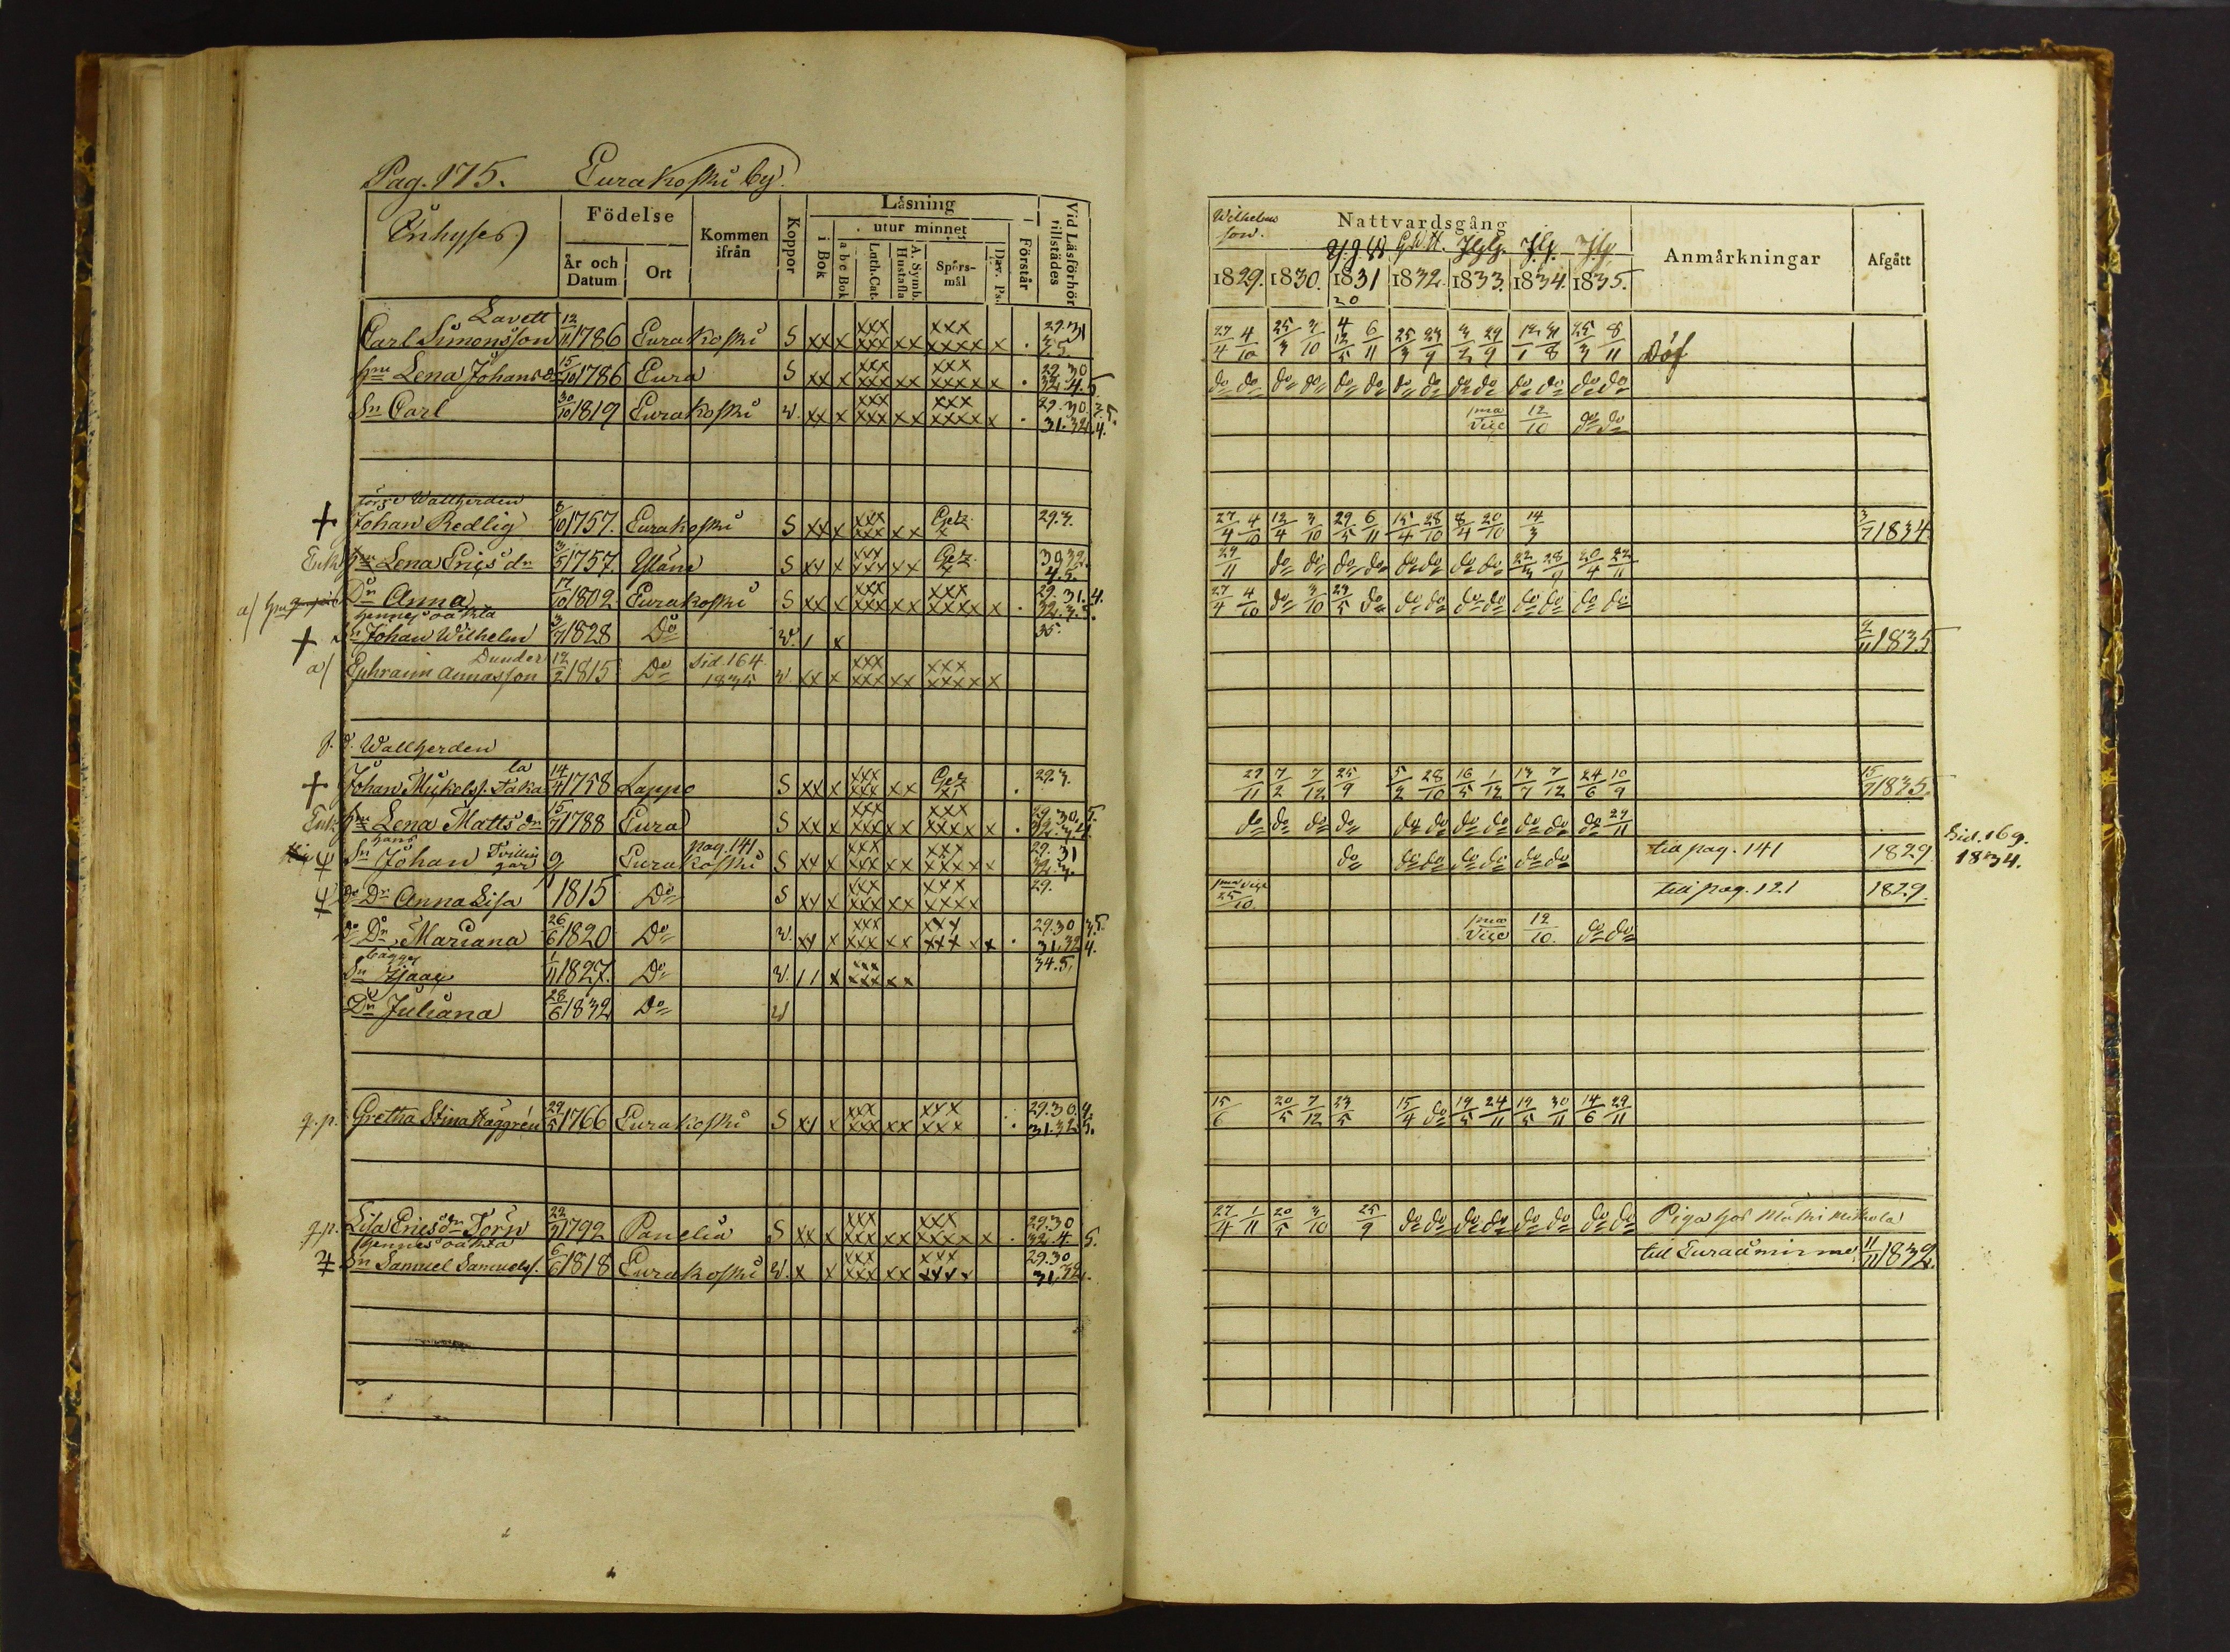 Pag. 175. Eurakoski by.
Inhyses
Födelse
År och Datum
Ort
Kommen ifrån
Koppor
Läsning
i Bok
utur minnet
a b c Bok
Luth. Cat.
A. Symb. Hustafla
Spörsmål
Dav. Ps.
Förstår
Vid Läsförhör tillstädes
Lavett
Carl Simonsson 12/11 1786 Eurakoski S xx x xxx xxx xx xxx xxxx x . 29. 31
Hru Lena Johansdr 15/10 1786 Eura S xx x xxx xxx xx xxx xxxxx . 29. 30 32. 4. 5.
Sn Carl 30/10 1819 Eurakoski v. xx x xxx xxx xx xxx xxxxx . 29. 30. 3. 5. 31. 32. 4.
Wallherden
+ Johan Redlig 8/10 1757. Eurakoski S xx x xxx xxx xx Getz x 29. 3.
Enk Hru Lena Ericsdr 3/5 1757. S xx x xxx xxx xx Getz x 4. 5.
a/ Dr Anna 17/10 1802 Eurakoski S xx x xxx xxx xx xxx xxxxx . 29. 31. 4. 32. 3. 5.
hennes oäkta
+ Sn Johan Wilhelm 3/7 1828 Do v. 1 x 35.
Dunder
a/ Ephraim Annasson 12/2 1815 Do sid. 164 1835 v. xx x xxx xxx xx xxx xxxxx
f. d. Wallherden
+ Johan Mickels. Takala 14/4 1758 Lappo S xx x xxx xxx xx Getz . 29. 3.
Enk Hru Lena Mattsdr 15/7 1788 Eura S xx x xxx xxx xx xxx xxxxx . 29. 30. 5. 32. 3. 4.
hans
Sn Johan Tvillingar 9 Eurakoski pag. 141 S xx x xxx xxx xx xxx xxxxx 29. 31 32. 3.
do Dr Anna Lisa 1815 Do S xx x xxx xxx xx xxx xxxx 29.
do Dr Mariana 26/6 1820 Do v. xx x xxx xxx xx xxx xxx xx . 29. 30 3. 5. 31. 32 4.
bägges
Sn Isaac 1/11 1827. Do v. 1 1 x xxx xxx xx 34. 5.
Dr Juliana 28/6 1832 Do v
q. p. Gretha Stina Häggrén 29/5 1766 Eurakoski S xx x xxx xxx xx xxx xxx . 29. 30. 4. 31. 32. 5.
q. p. Lisa Ericsdr Törn 22/11 1792 Panelia S xx x xxx xxx xx xxx xxxxx . 29. 30 32. 4 5.
hennes oäkta
Sn Samuel Samuels. 6/6 1818 Eurakoski v. x x xxx xxx xx xxx xxxx 29. 30 31. 32.
Wilhelmsson.
Nattvardsgång
Anmärkningar
Afgått
1829. 1830. 1831 1832. 1833. 1834. 1835.
27/4 4/10 25/3 3/10 12/5 6/11 25/3 23/9 3/2 29/9 12/1 31/8 25/3 8/11 Döf
do do do do do do do do do do do do do do
1ma Vice 12/10 do do
27/4 4/10 12/4 3/10 29/5 6/11 15/4 28/10 8/4 20/10 14/3 3/7 1834
29/11 do do do do do do do do 22/3 28/9 20/4 22/11
27/4 4/10 do 3/10 23/5 do do do do do do do do do
2/11 1835
29/11 7/2 7/12 25/9 5/2 28/10 16/5 1/12 13/7 7/12 24/6 10/9 15/7 1835.
do do do do do do do do do do do 29/11
do do do do do do do till pag. 141 1829 Sid. 169. 1834.
1ma Vice 25/10 till pag. 121 1829.
1ma Vice 12/10. do do
15/6 20/5 7/12 23/5 15/4 do 19/5 24/11 19/5 30/11 14/6 29/11
27/4 1/11 20/5 3/10 25/9 do do do do do do do do Piga hos Mikkola
till Euraåminne 11/11 1832.